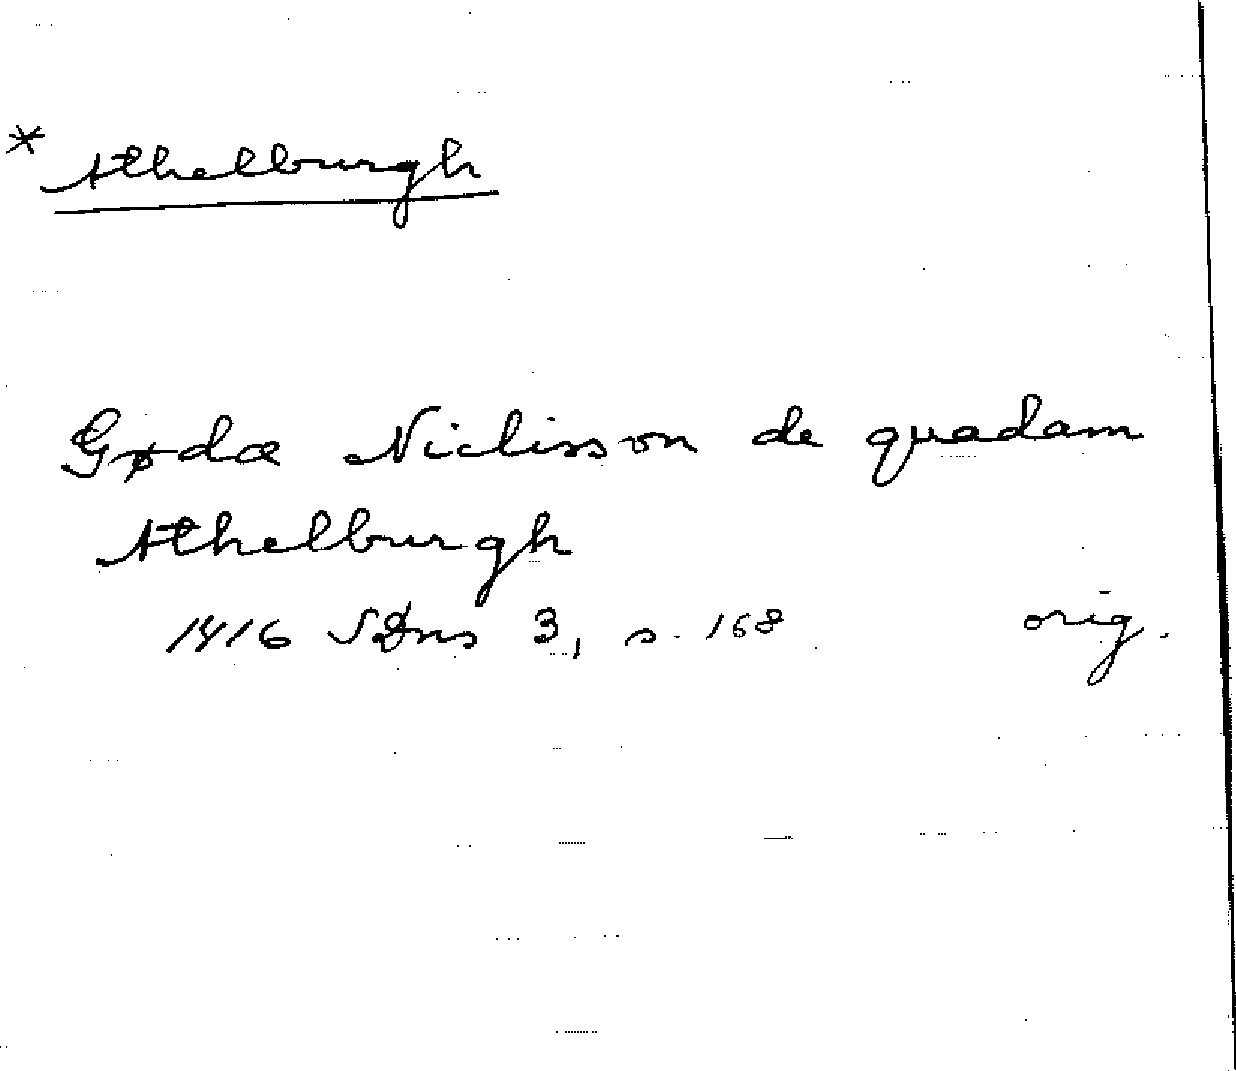 * Athelburgh
Gødæ Niclisson de quadam
Athelburgh
1416 SDns 3, s. 168 orig.